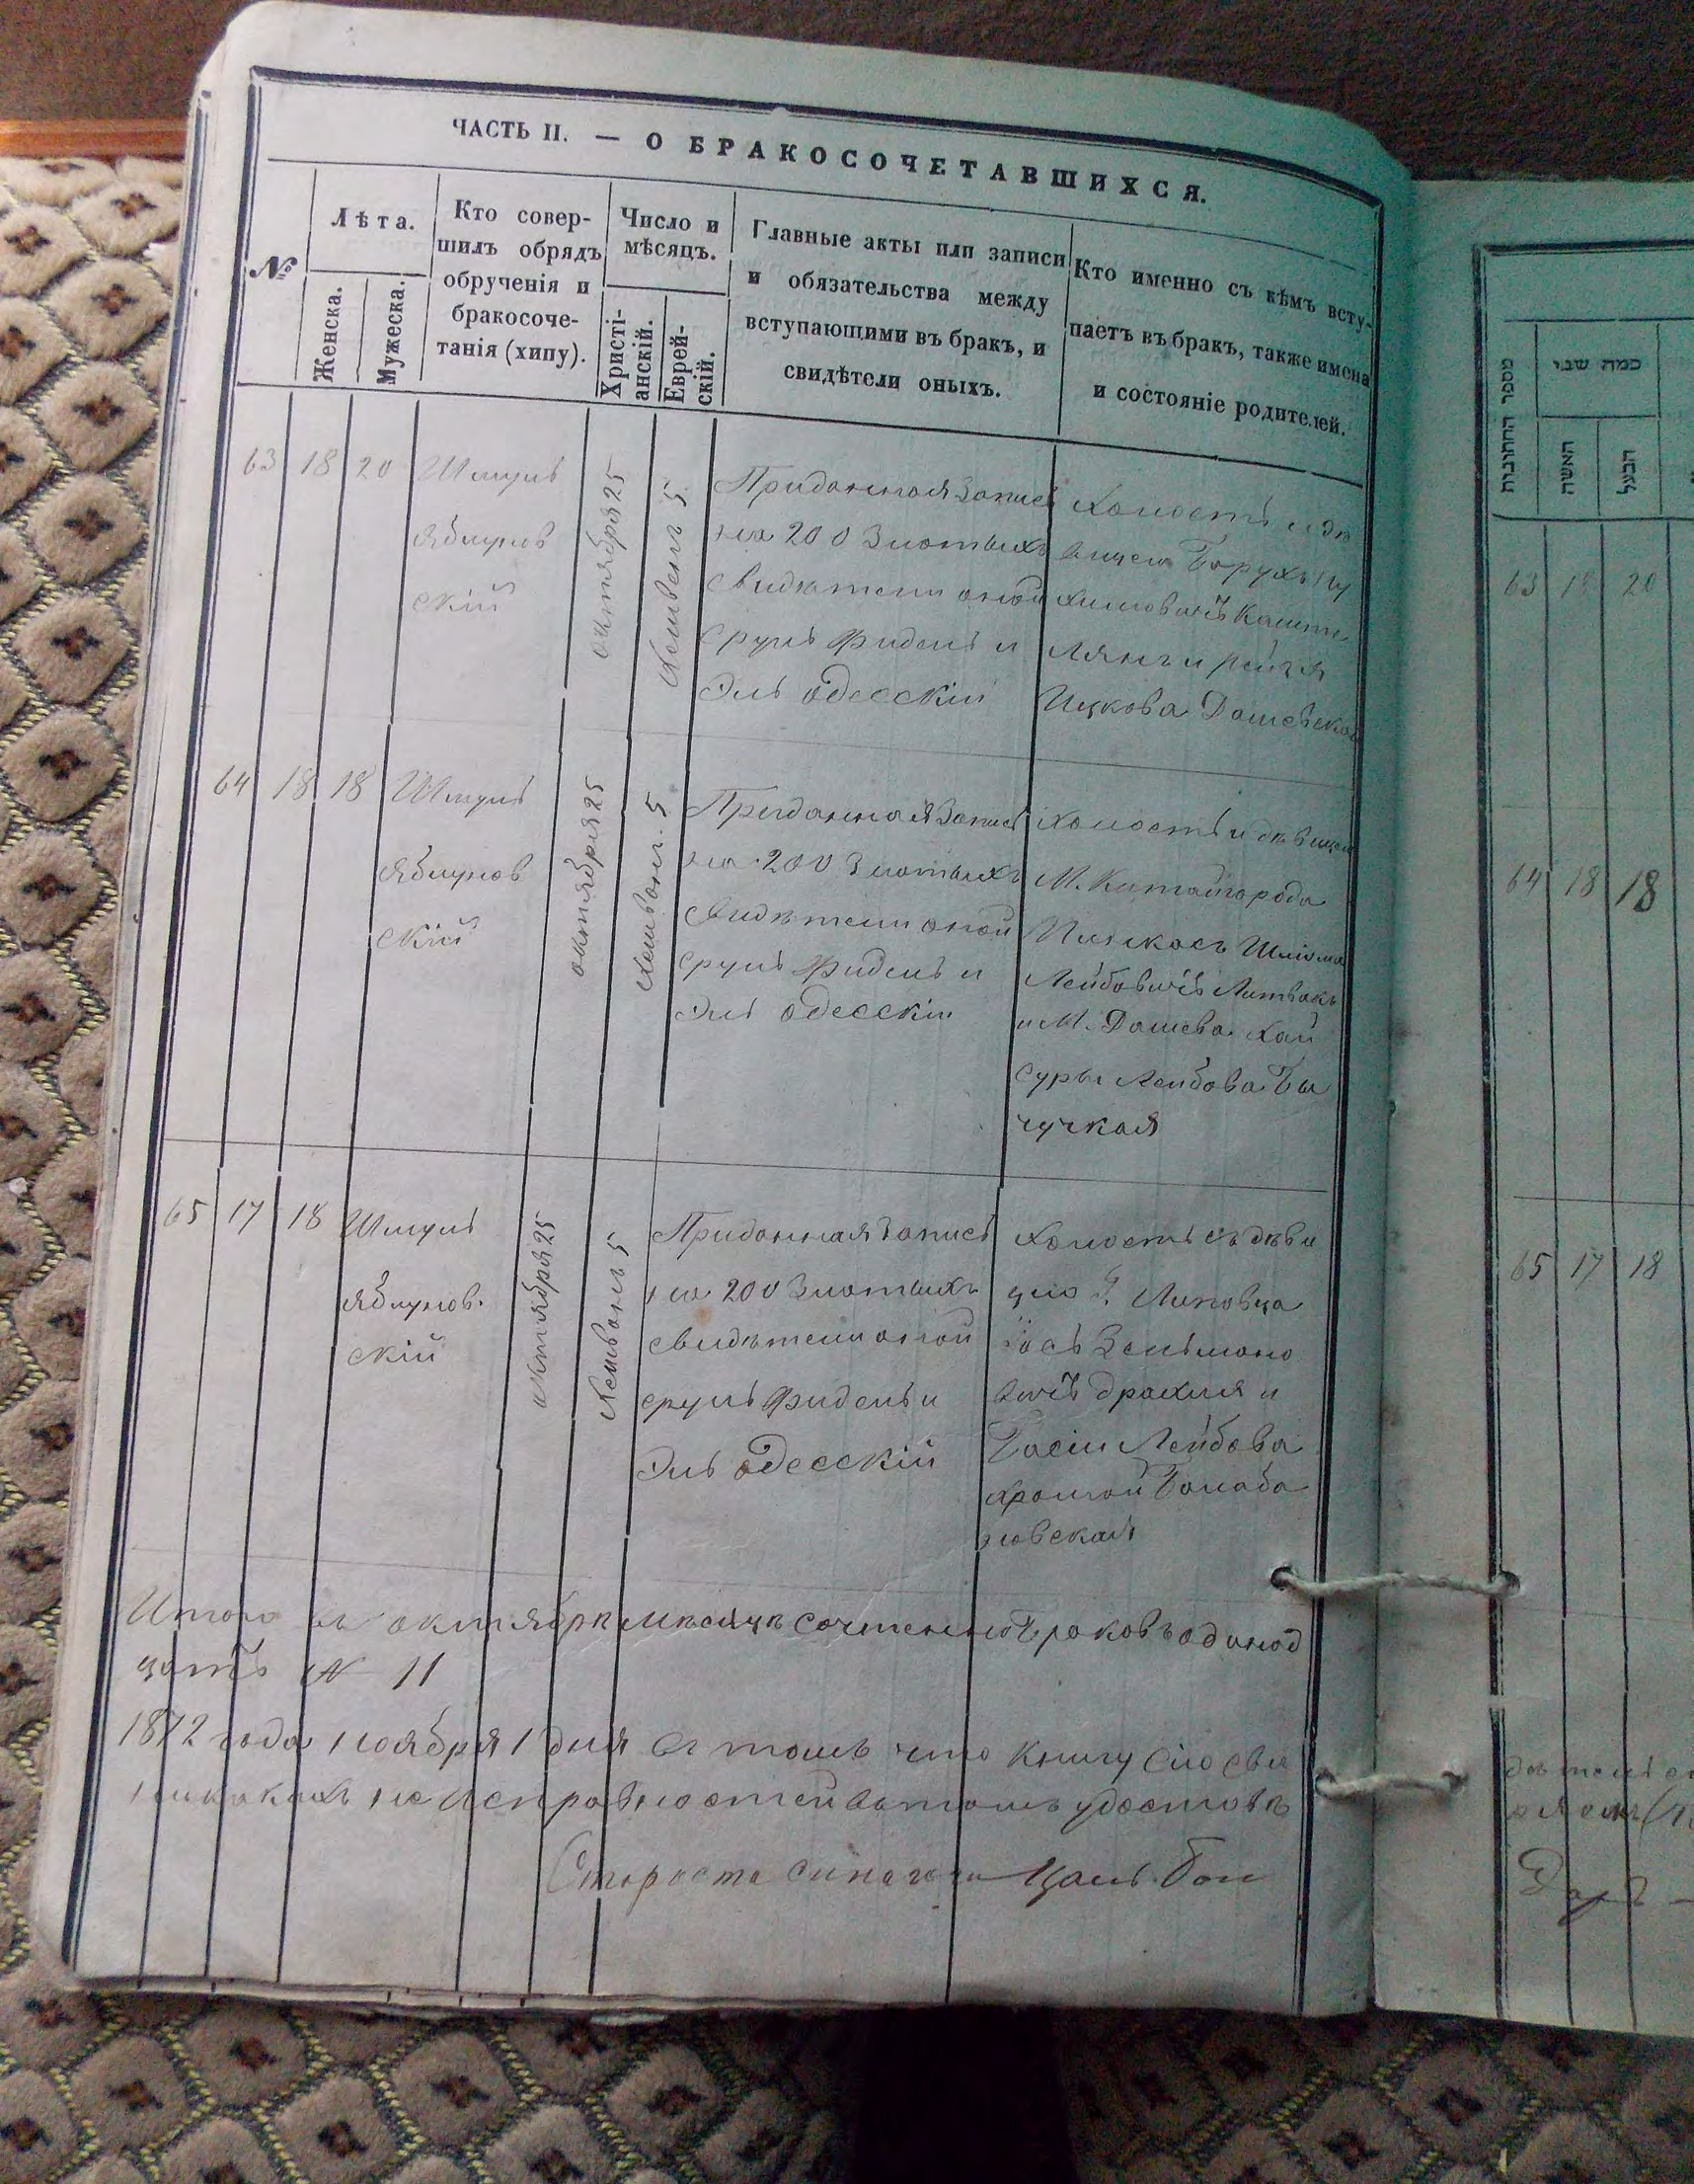 ЧАСТЬ II. — О БРАКОСОЧЕТАВШИХСЯ.
№
Лѣта.
Женска.
Мужеска.
Кто совер-
шилъ обрядъ
обрученія и
бракосоче-
танія (хипу).
Число и
мѣсяцъ.
Христі-
анскій.
Еврей-
скій.
Главные акты или записи
и обязательства между
вступающими въ бракъ, и
свидѣтели оныхъ.
Кто именно съ кѣмъ всту-
паетъ въ бракъ, также имена
и состояніе родителей.
63 18 20
Шмуль
Яблунов
скій
октября 25
Хешвень 5
Приданная Запись
на 200 Злотыхъ
свидѣтели оной
Сруль Фидель и
Эль Одесскій
Холость и дѣ
вицею Борухъ
Каште
лянъ и Рейзя
Ицкова Дашевская
64 18 18
Шмуль
Яблунов
скій
октября 25
Хешвонь 5
Приданная Запись
на 200 Злотыхъ
свидѣтели оной
Сруль Фидель и
Эль Одесскій
Холость и дѣвицею
М. Китайгорода
Пинкасъ Шліома
Лейбовичъ Литвакъ
и М. Дашева Хай
Суры Лейбова Бы
чучкая
65 17 18
Шмуль
Яблунов.
скій
октября 25
Хешвонь 5
Приданная Запись
на 200 Злотыхъ
свидѣтели оной
Сруль Фидель и
Эль Одесскій
Холость съ дѣви
цею Г. Липовца
Іось Зельмано
вичъ Драхля и
Басіи Лейбова
Балаба
новская
Итого въ октябрѣ мѣсяцѣ сочтенно браковъ одинад
цать № 11
1872 года ноября 1 дня въ томъ что книгу сію
никакихъ не исправностей въ томъ удостовѣ
Староста синагоги Цаль
מספר החתונות
כמה שני
האשה
הבעל
63 18 20
64 18 18
65 17 18